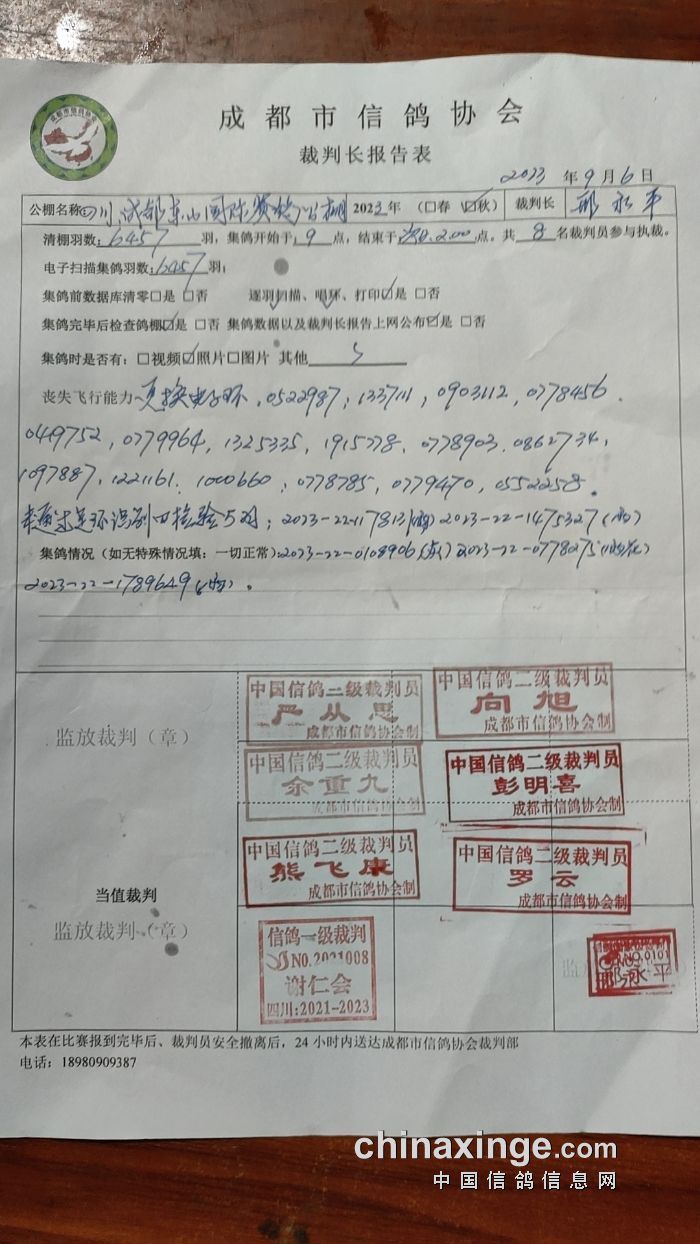 成都市信鸽协会
裁判长报告表
2023 年 9 月 6 日
公棚名称 四川成都东山国际赛鸽公棚 2023年 (□春 ☑秋) 裁判长 永平
清棚羽数:6457 羽,集鸽开始于 9 点,结束于 2.00 点。共 8 名裁判员参与执裁。
电子扫描集鸽羽数:6457羽;
集鸽前数据库清零□是 □否 逐羽扫描、唱环、打印☑是 □否
集鸽完毕后检查鸽棚☑是 □否 集鸽数据以及裁判长报告上网公布☑是 □否
集鸽时是否有: □视频☑照片□图片 其他
丧失飞行能力 更换电子环,0522987;133711;0903112,0778456.
0419752,0779964,1325335,1915778.0778903.0862734,
1097887,1221161.1000660;0778785,0779470,0552258。
2023-22-117813 2023-22-1475327
集鸽情况(如无特殊情况填:一切正常)2023-22-0108906 2023-22-0778275
2023-22-1789649 。
监放裁判(章)
中国信鸽二级裁判员
严从思
成都市信鸽协会制
中国信鸽二级裁判员
向旭
成都市信鸽协会制
中国信鸽二级裁判员
余重九
成都市信鸽协会制
中国信鸽二级裁判员
彭明喜
成都市信鸽协会制
当值裁判
监放裁判(章)
中国信鸽二级裁判员
熊飞康
成都市信鸽协会制
中国信鸽二级裁判员
罗云
成都市信鸽协会制
信鸽一级裁判
NO.2021008
谢仁会
四川:2021-2023
NO.0101
永平
本表在比赛报到完毕后、裁判员安全撤离后,24小时内送达成都市信鸽协会裁判部
电话:18980909387
chinaxinge.com
中国信鸽信息网